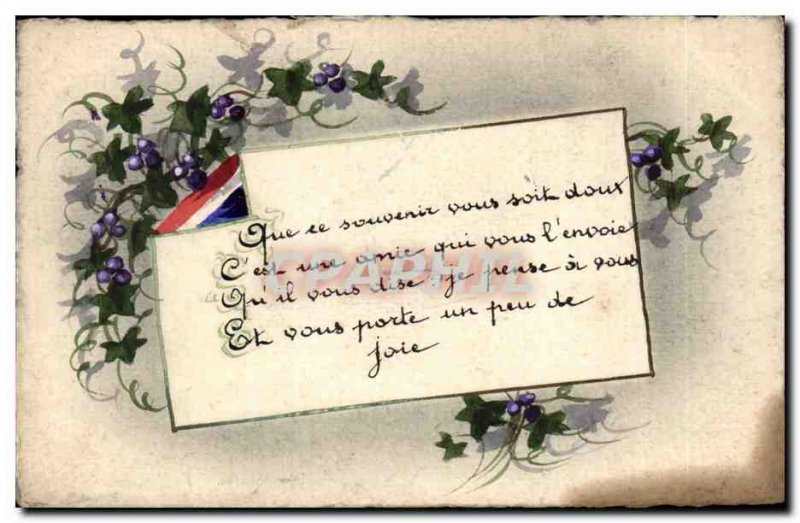 Que ce souvenir vous soit doux
C'est une amie qui vous l'envoie
Qu'il vous dise "je pense à vous
Et vous porte un peu de
joie
CPAPHIL